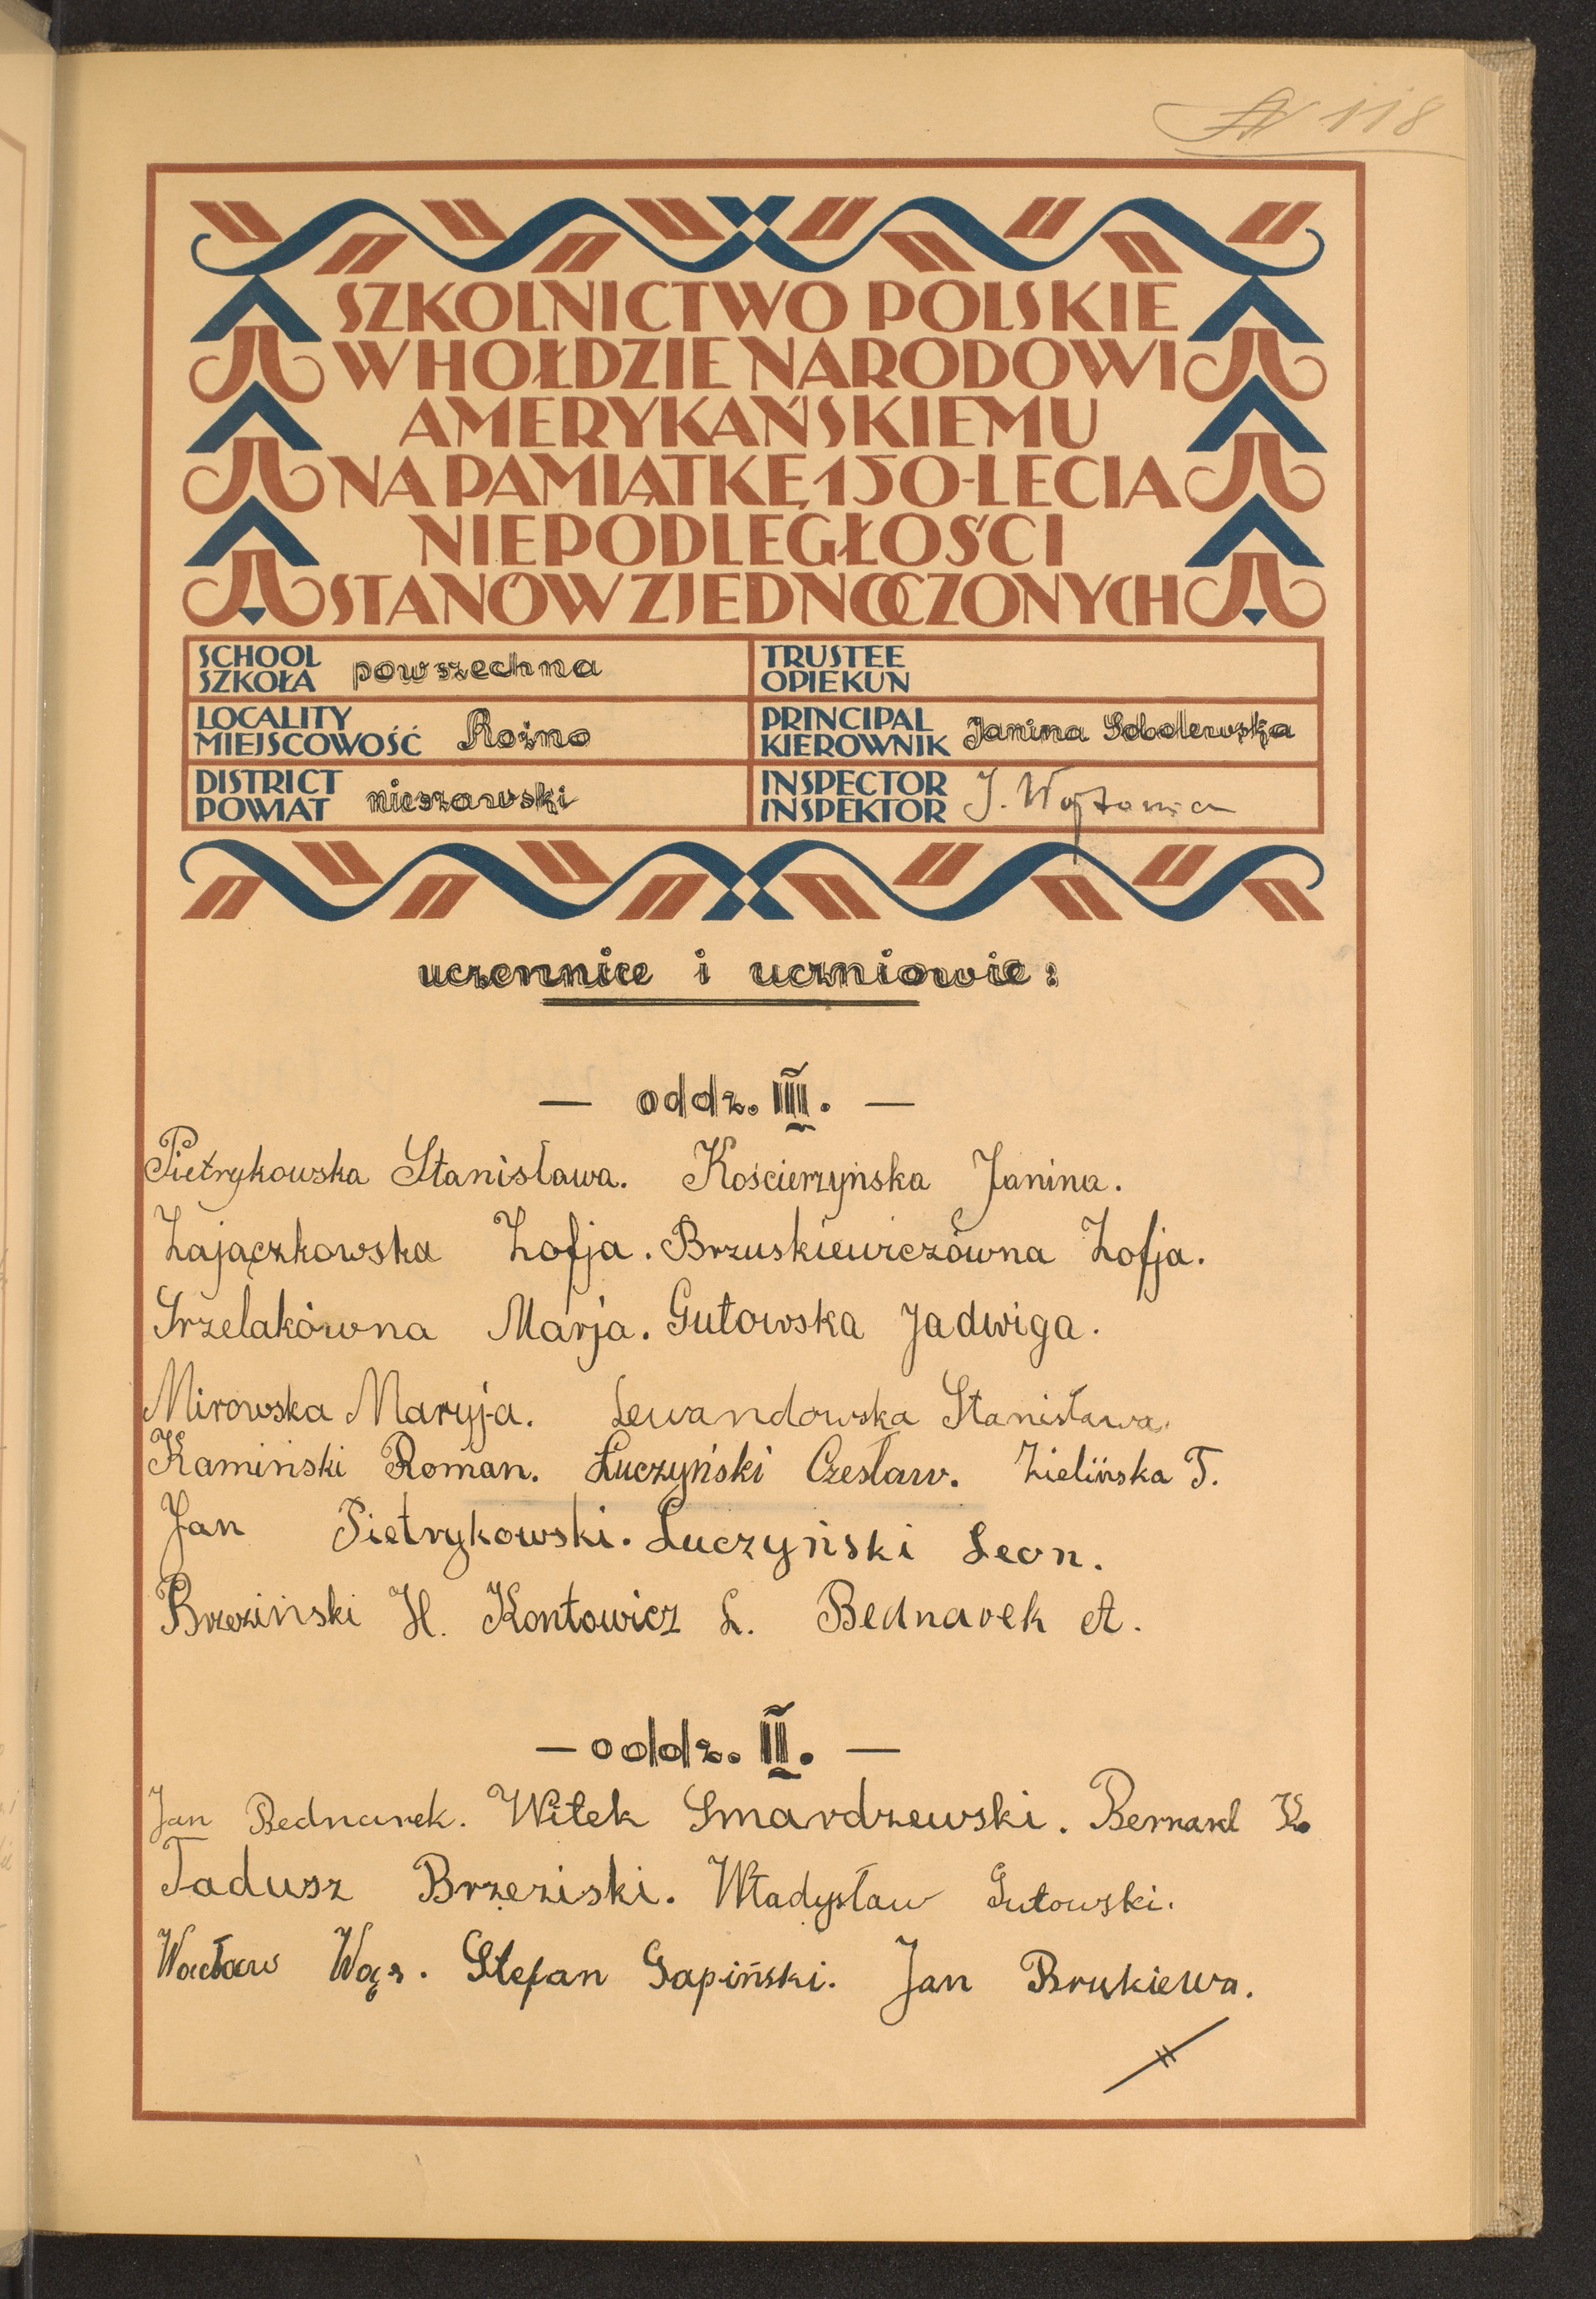 N 118
SZKOLNICTWO POLSKIE
W HOŁDZIE NARODOWI
AMERYKAŃSKIEMU
NA PAMIĄTKĘ 150-LECIA
NIEPODLEGŁOŚCI
STANÓW ZJEDNOCZONYCH
SCHOOL SZKOŁA powszechna
TRUSTEE OPIEKUN
LOCALITY MIEJSCOWOŚĆ Rożno
PRINCIPAL KIEROWNIK Janina Sobolewska
DISTRICT POWIAT nieszawski
INSPECTOR INSPEKTOR J.
uczennice i uczniowie:
— oddz. III. —
Pietrykowska Stanisława. Kościerzyńska Janina.
Zajączkowska Zofja. Brzuskiewiczówna Zofja.
Grzelakówna Marja. Gutowska Jadwiga.
Mirowska Maryja. Lewandowska Stanisława.
Kamiński Roman. Łuczyński Czesław. Zielińska T.
Jan Pietrykowski. Łuczyński Leon.
Brzeziński H. Kontowicz L. Bednarek A.
— oddz. II. —
Jan Bednarek. Witek Smardzewski. Bernard K.
Tadusz Brzeziski. Władysław Gutowski.
Wacław Wąs. Stefan Gapiński. Jan Brukiewa.